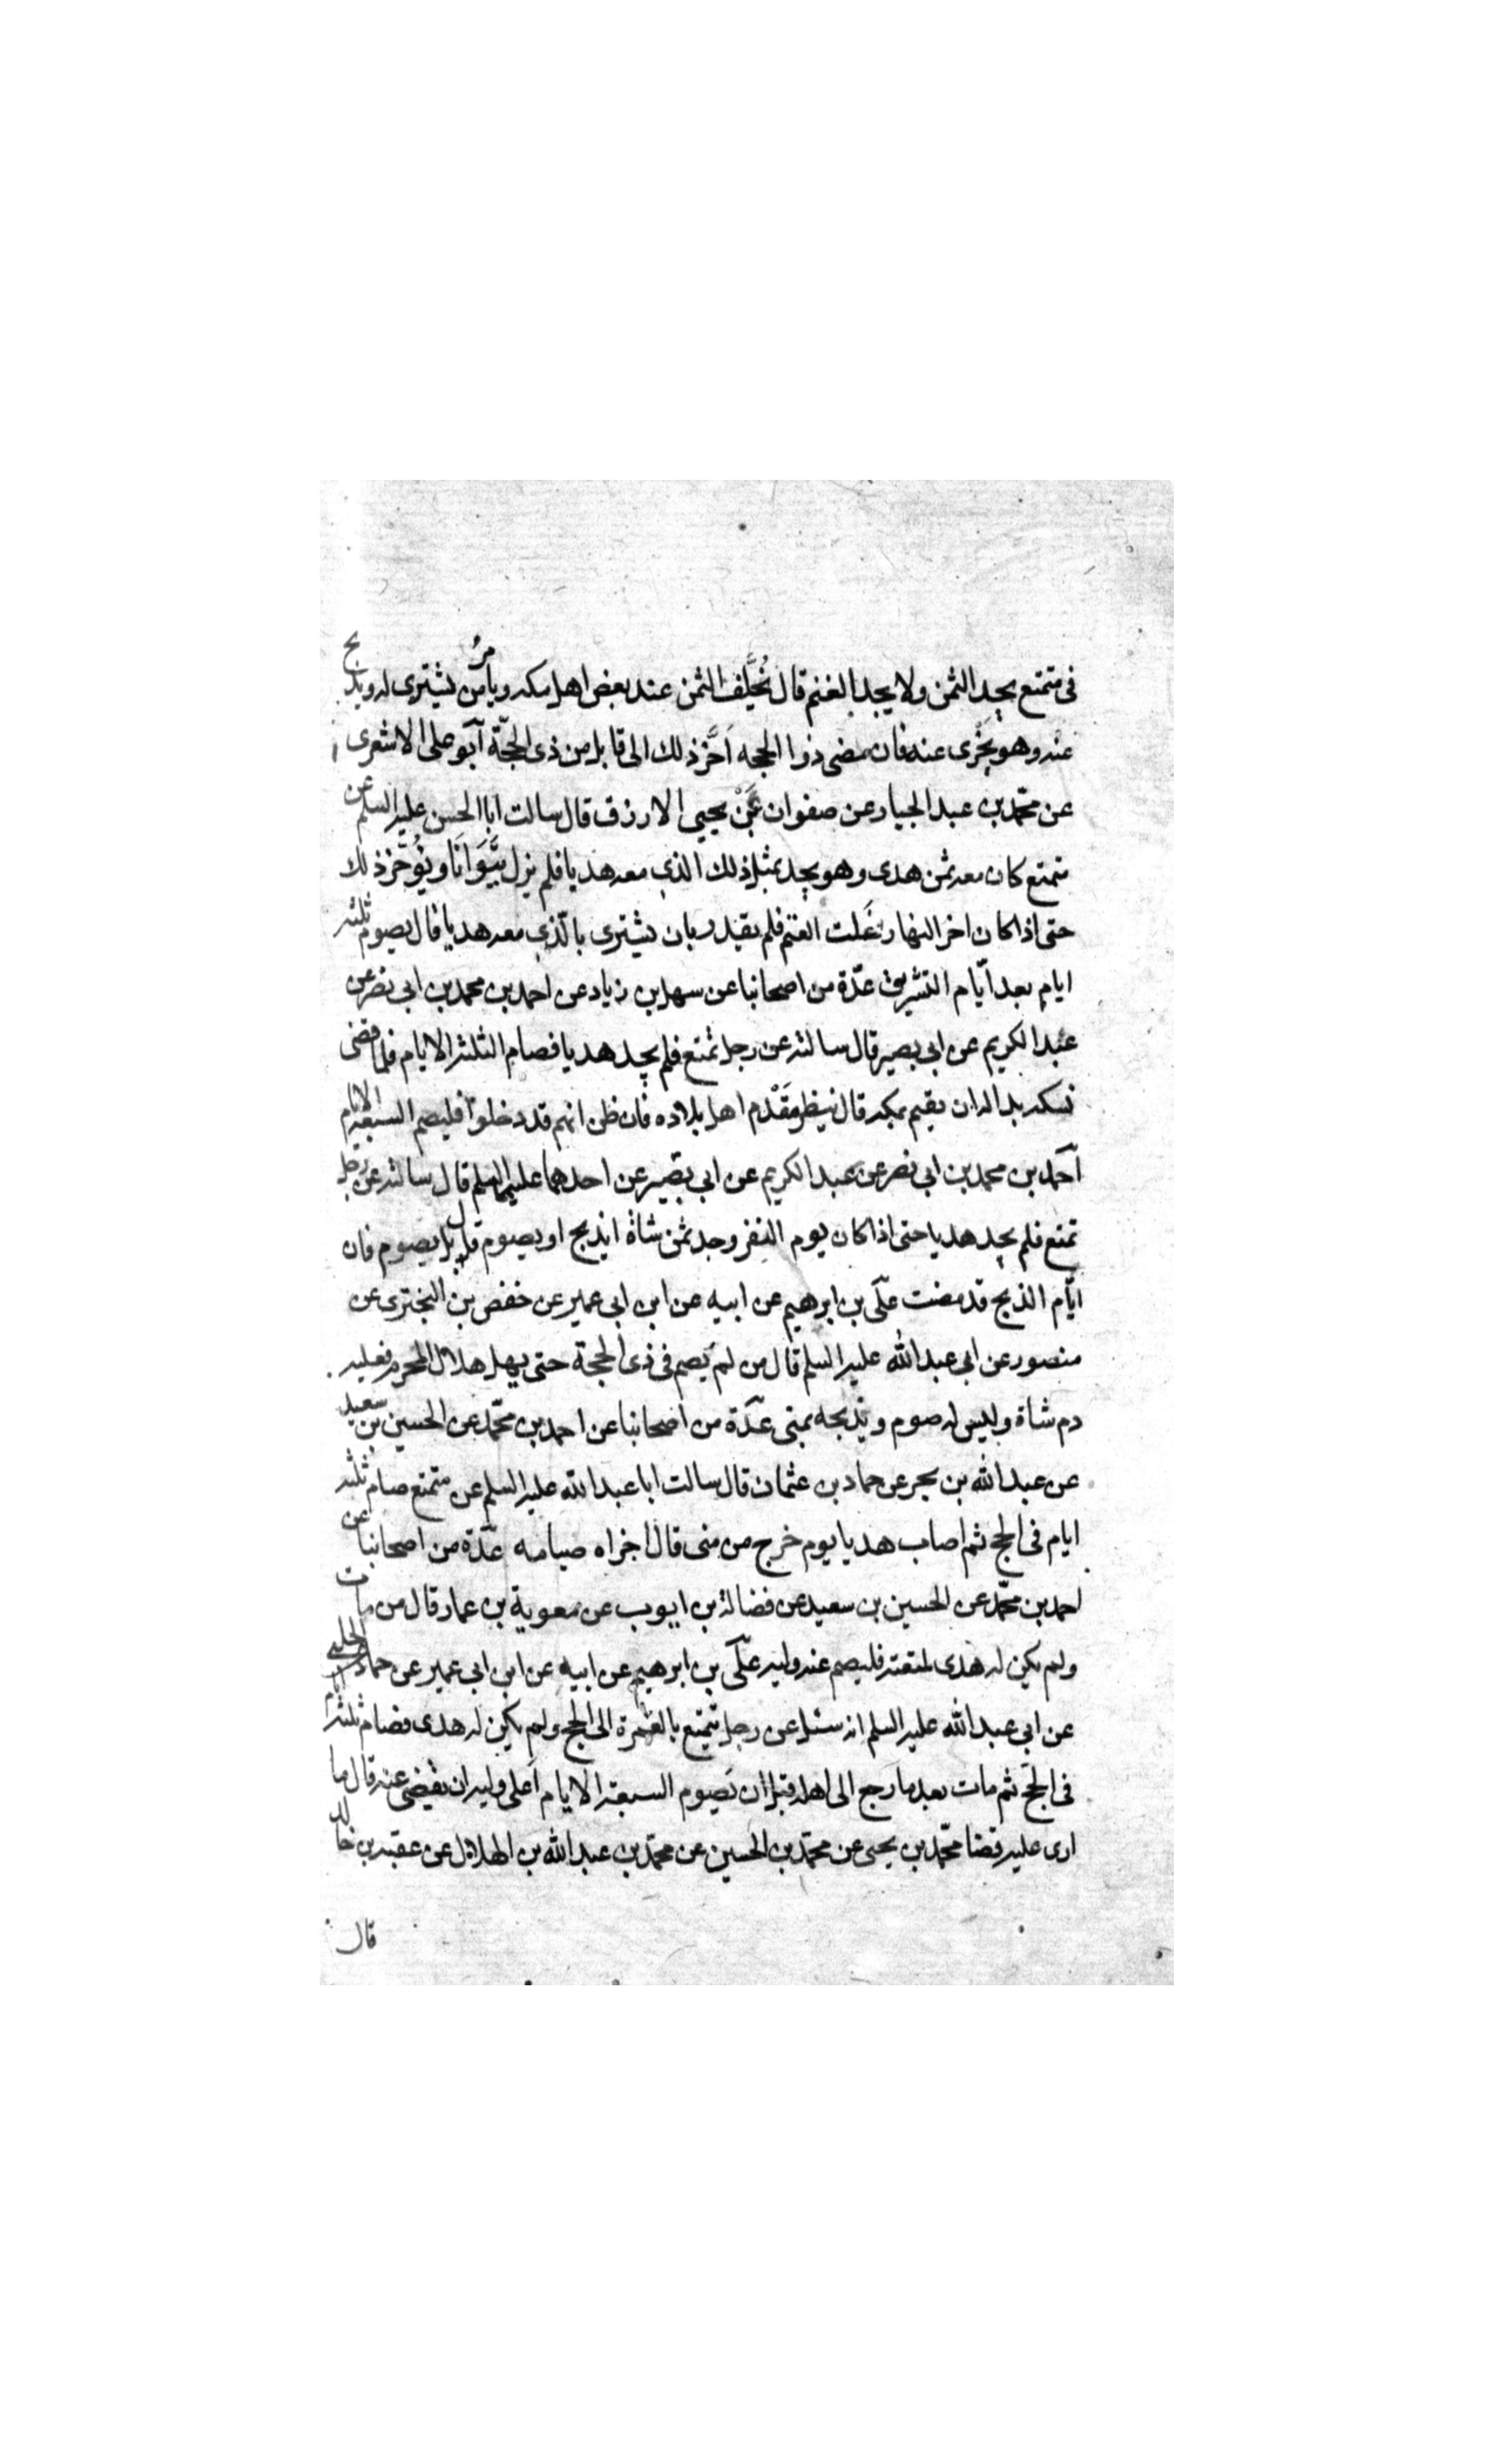 فى متمتع يجد الثمن ولا يجد الغنم قال يُخَلِّف الثمن عند بعض اهل مكه ويأمُر من يشترى له ويذبح
عنه وهو يُجْزى عنه فان مضى ذوا الحجه اَخَّرَ ذلك الى قابل من ذى الحجّة اَبو على الاشعرى
عن محمّد بن عبد الجبار عن صفوان عَنْ يحيى الازرق قال سالت ابا الحسن عليه السلم عن
متمتع كان معه ثمن هدى وهو يجد بمثل ذلك الذى معه هديا فلم يزل يَتَوَانَا ويُؤَخّر ذلك
حتى اذا كان اخر النهار غَلَت الغنم فلم يقدر بان يشترى بالّذى معه هديا قال يصوم ثلثه
ايام بعد ايّام التشريق عدّة من اصحابنا عن سهل بن زياد عن احمد بن محمد بن ابى نصر عن
عبد الكريم عن ابى بصير قال سالته عن رجل تمتع فلم يجد هديا فصام الثلثه الايام فلما قضى
نسكه بدا له ان يقيم بمكه قال ينظر مَقْدَم اهل بلاده فان ظن انهم قد دخلوا فليصم السبعه الايام
اَحمد بن محمد بن ابى نصر عن عبد الكريم عن ابى بصير عن احدهما عليهما السلم قال سالته عن رجل
تمتع فلم يجد هديا حتى اذا كان يوم النفر وجد ثمن شاة ايذبح او يصوم قال بل يصوم فان
ايّام الذبح قد مضت علّى بن ابرهيم عن ابيه عن ابن ابى عمير عن حفص بن البخترى عن
منصور عن ابى عبد الله عليه السلم قال من لم يَصم فى ذى الحجة حتى يهل هلال المحرم فعليه
دم شاة وليس له صوم ويذبحه بمنى عدّة من اصحابنا عن احمد بن محمّد عن الحسين بن سعيد
عن عبد الله بن بحر عن حماد بن عثمان قال سالت ابا عبد الله عليه السلم عن متمتع صام ثلثه
ايام فى الحج ثم اصاب هديا يوم خرج من منى قال اجزاه صيامه عدّة من اصحابنا عن
احمد بن محمّد عن الحسين بن سعيد عن فضالة بن ايوب عن معوية بن عمار قال من مات
ولم يكن له هدى لمتعته فليصم عنه وليه علّى بن ابرهيم عن ابيه عن ابن ابى عمير عن حماد عن الحلبى
عن ابى عبد الله عليه السلم انه سئل عن رجل تمتع بالعُمرة الى الحج ولم يكن له هدى فصام ثلثه ايام
فى الحجّ ثم مات بعد ما رجع الى اهله قبل ان يَصوم السبعه الايام اَعلى وليه ان يقضى عنه قال ما
ارى عليه قضا محمّد بن يحيى عن محمّد بن الحسين عن محمّد بن عبد الله بن الهلال عن عقبه بن خالد
قال